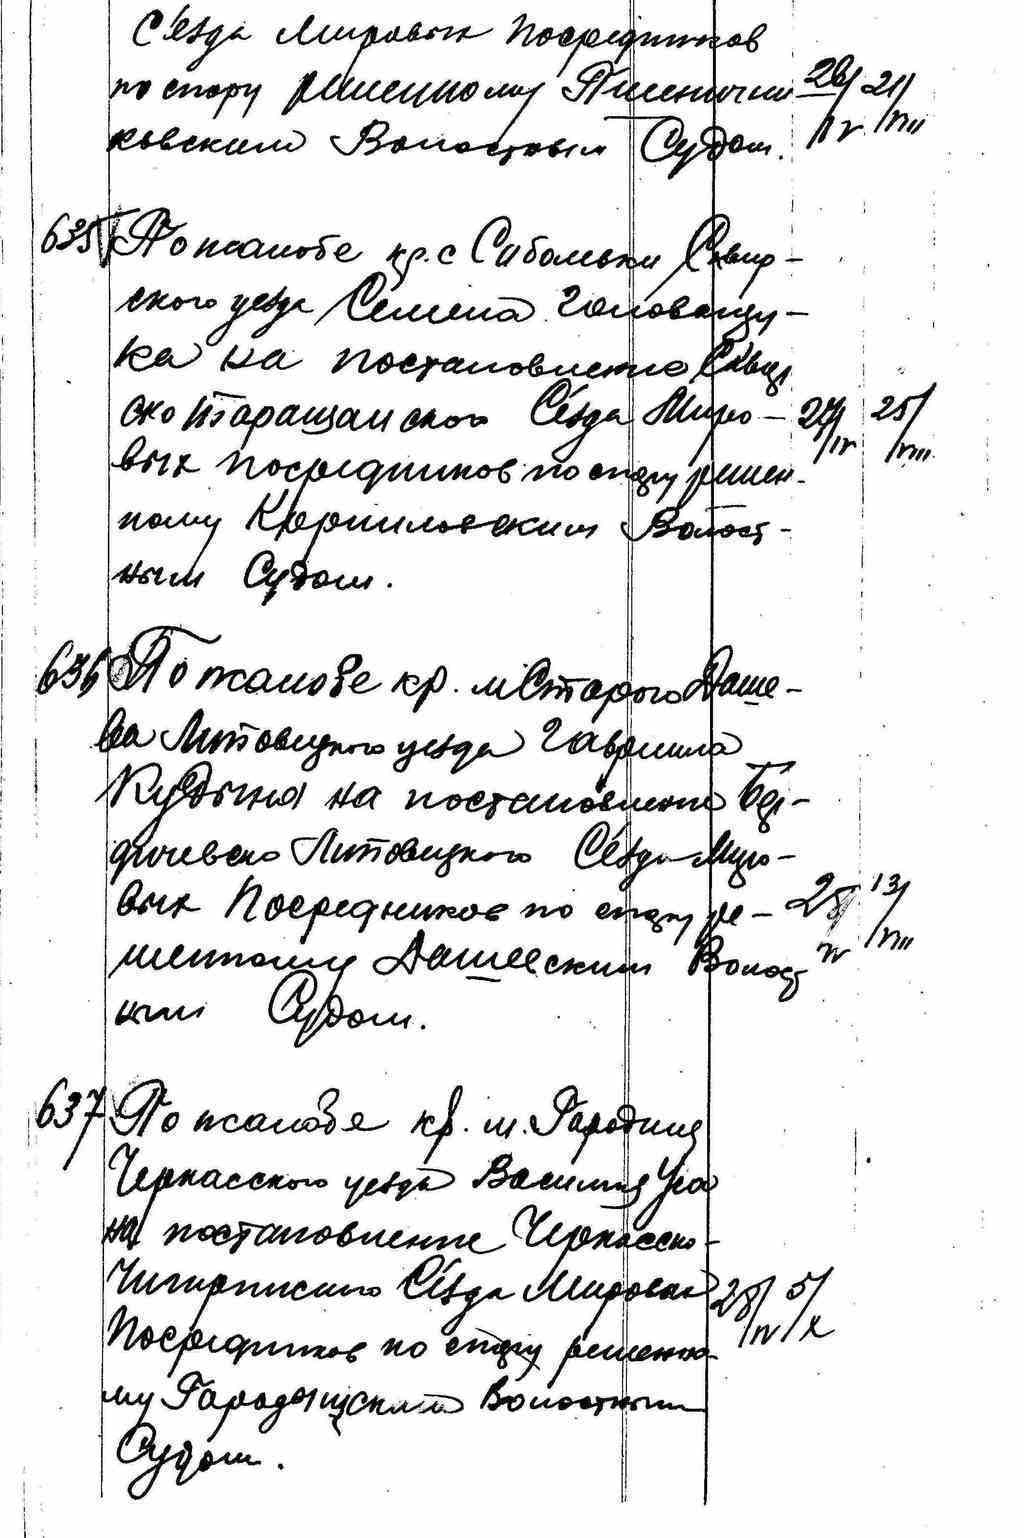 Съезда Мировых Посредников
по спору решенному Пшенични- 26/IV 21/VIII
ковским Волостным Судом.
635 По жалобе кр. с Сабольки Сквир-
ского уезда Семена Головащу-
ка на постановление Сквир
ско Таращанского Съезда Миро- 27/IV 25/VIII
вых посредников по спору решен-
ному Корниловским Волост-
ным Судом.
636 По жалобе кр. м Старого Даше-
ва Липовецкого уезда Гавриила
Кудына на постановление Бер-
дичевско Липовецкого Съезда Миро-
вых Посредников по спору ре- 25/IV 13/VIII
шенному Дашевским Волост
ным Судом.
637 По жалобе кр. м. Городища
Черкасского уезда Василия
на постановление Черкасско-
Чигиринского Съезда Мировых 28/IV 5/X
Посредников по спору решенно-
му Городищским Волостным
Судом.